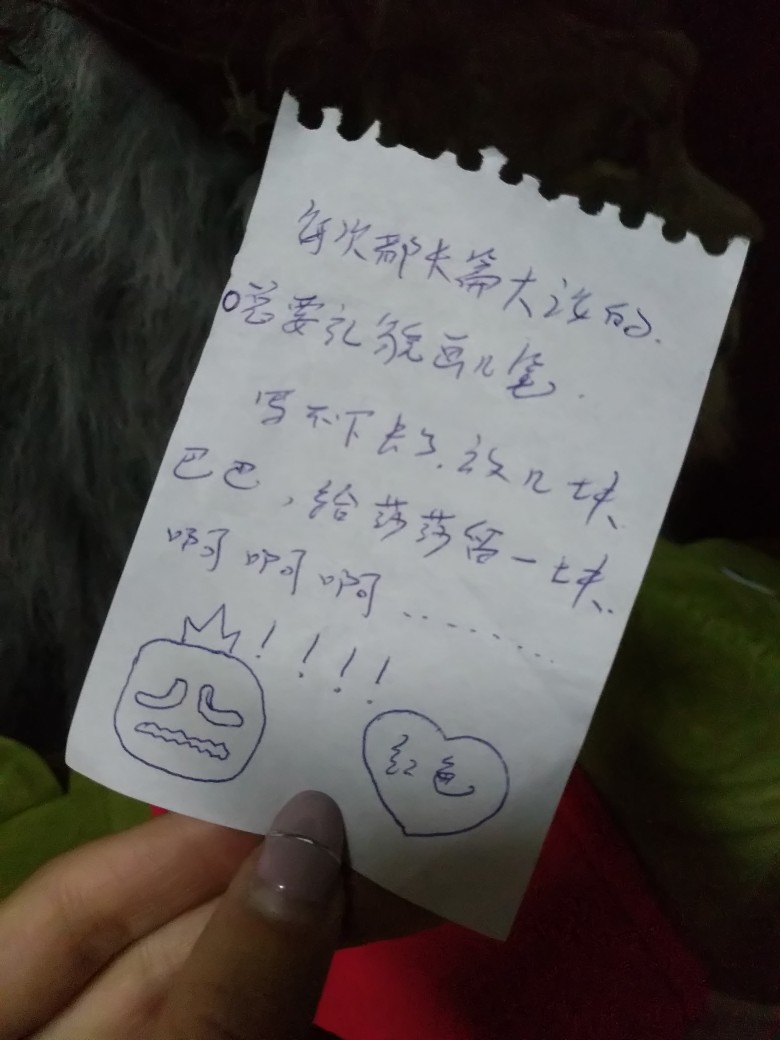 每次都长篇大论的.
总要让我画几笔.
写不下去了.这几块
巴巴,给莎莎留一块
啊啊啊........
!!!!
红色